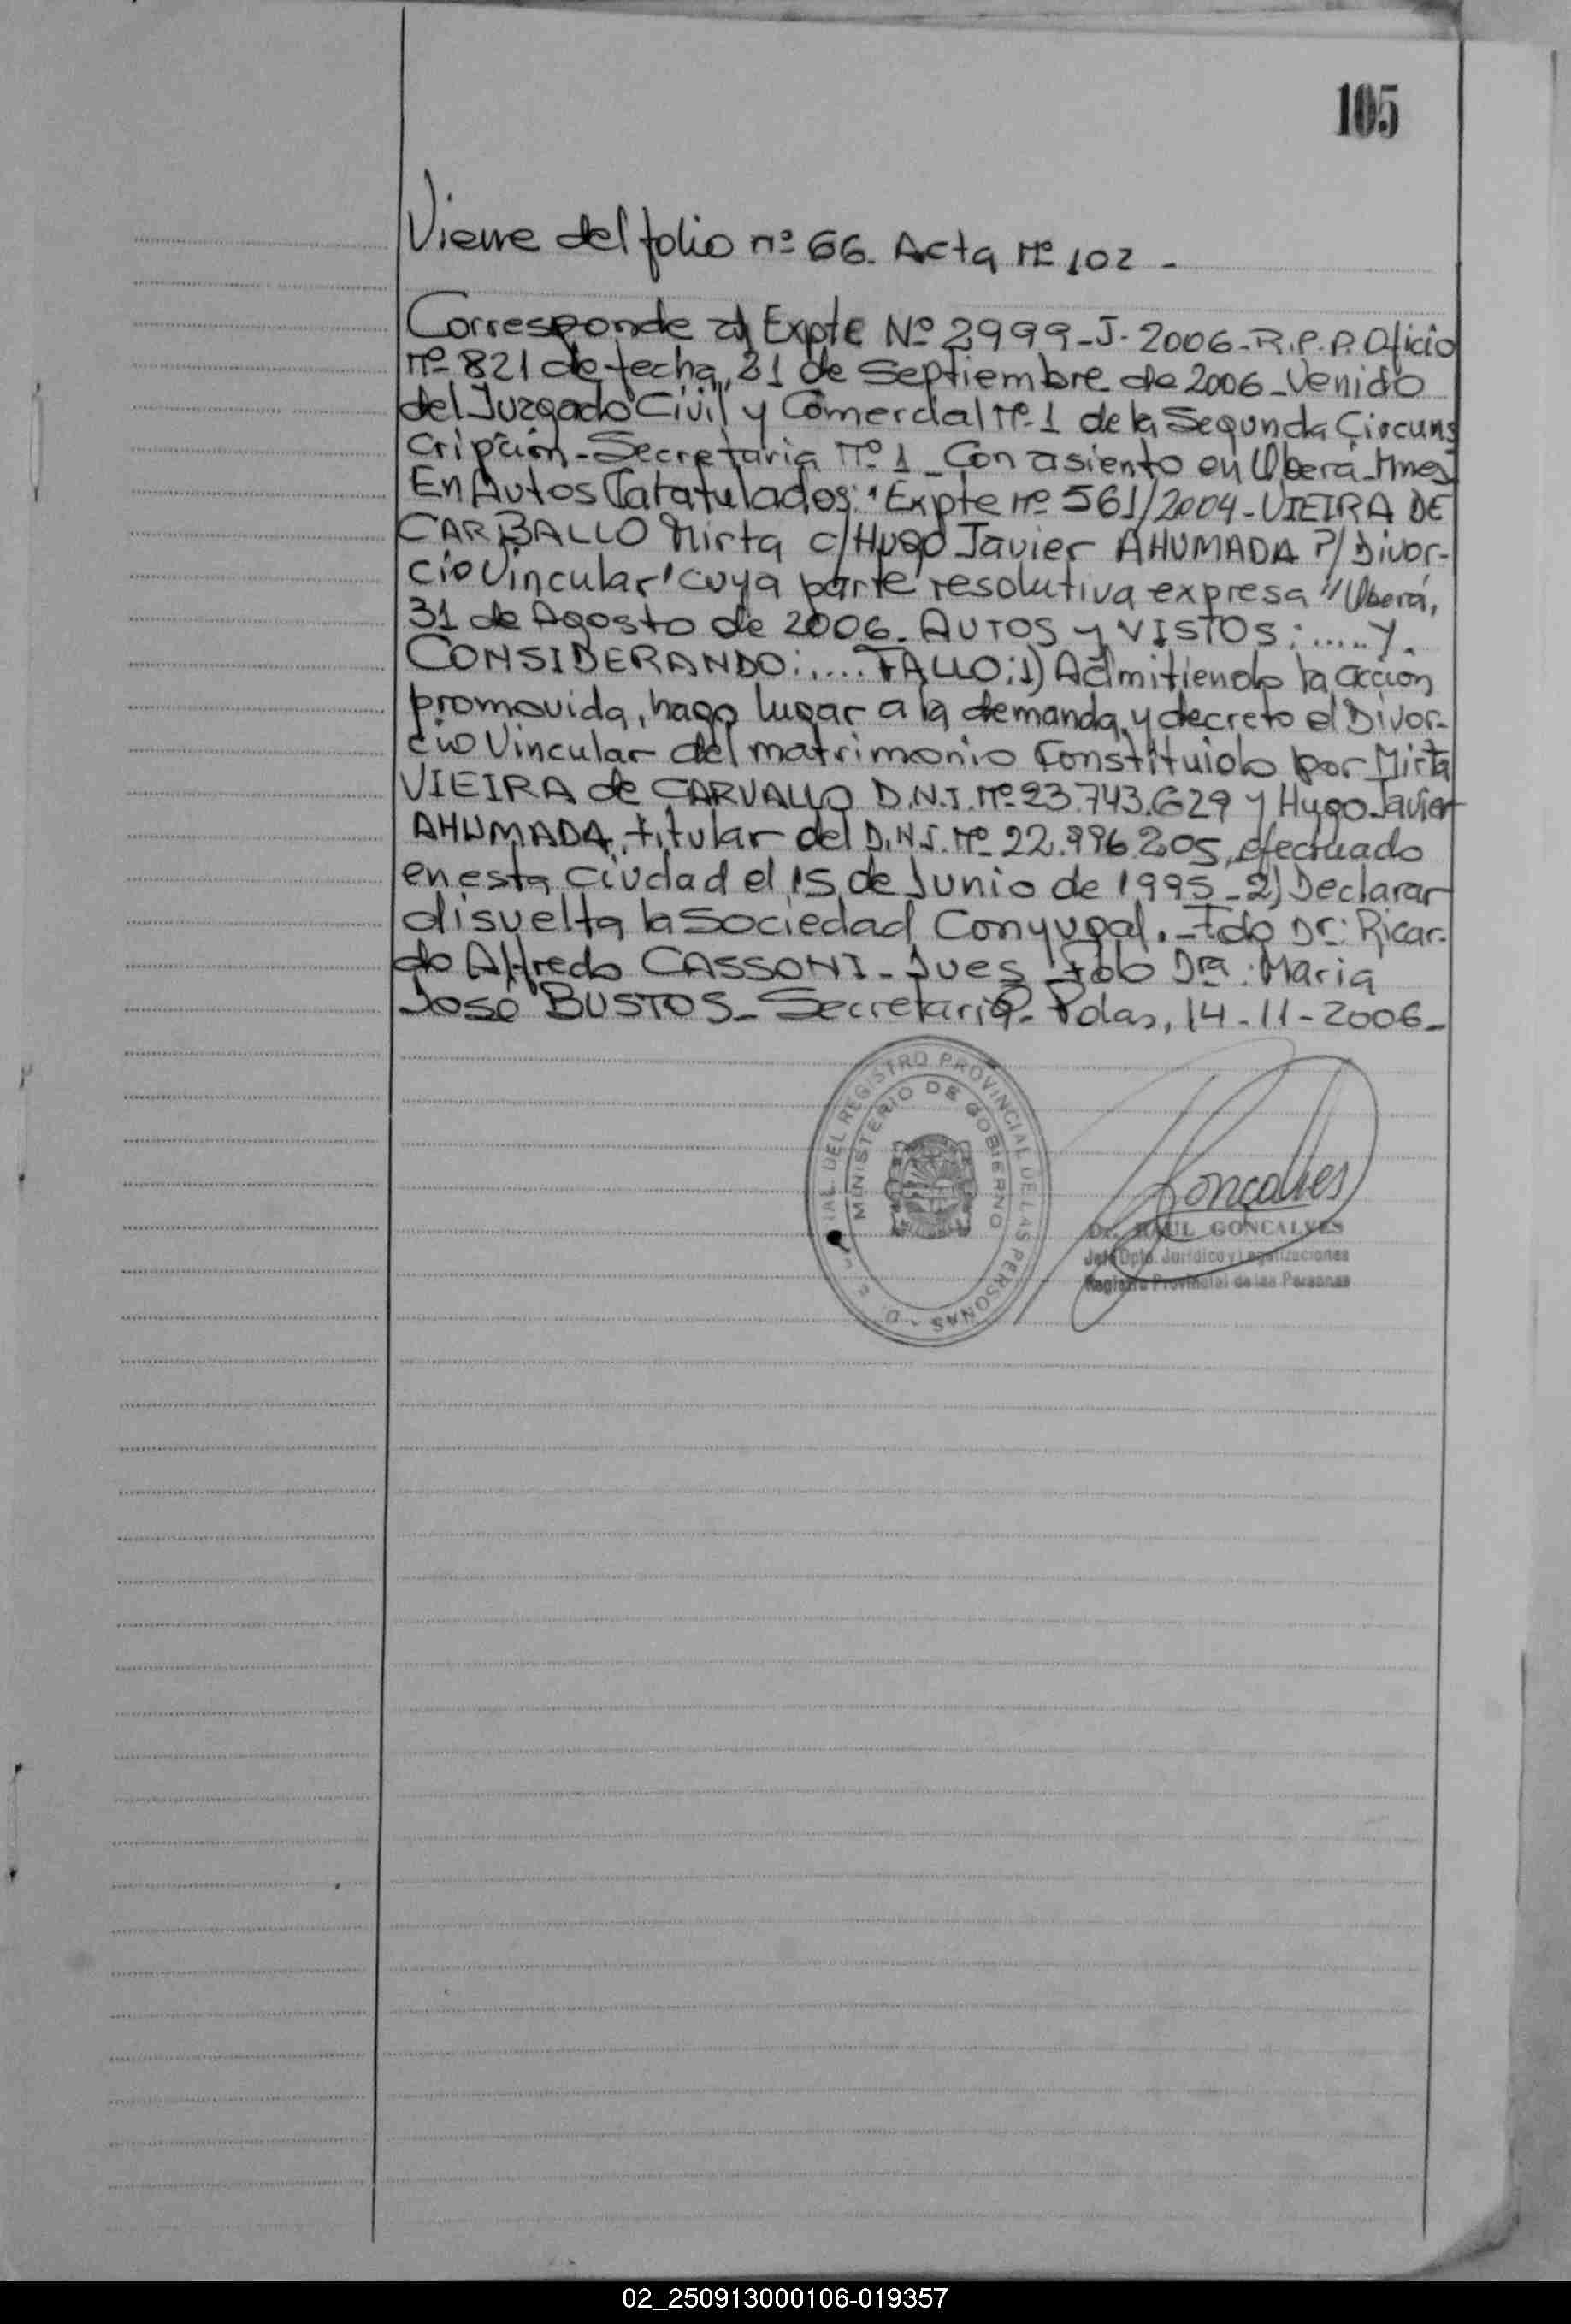 105
Viene del folio nº 66. Acta Nº 102 -
Corresponde al Expte Nº 2999-J-2006-R.P.P. Oficio
nº 821 de fecha, 21 de Septiembre de 2006-Venido
del Juzgado Civil y Comercial Nº 1 de la Segunda Circuns
cripción-Secretaria Nº 1 - Con asiento en Oberá-Mnes
En Autos Caratulados: "Expte nº 561/2004-VIEIRA DE
CARBALLO Mirta c/Hugo Javier AHUMADA P/Divor-
cio Vincular" cuya parte resolutiva expresa "Oberá,
31 de Agosto de 2006. AUTOS y VISTOS: ..... Y.
CONSIDERANDO: .... FALLO: 1) Admitiendo la acción
promovida, hago lugar a la demanda, y decreto el Divor-
cio Vincular del matrimonio Constituido por Mirta
VIEIRA de CARVALLO D.N.I. Nº 23.743.629 y Hugo Javier
AHUMADA, titular del D.N.I. Nº 22.996.205, efectuado
en esta ciudad el 15 de Junio de 1995-2) Declarar
disuelta la Sociedad Conyugal.-Fdo Dr: Ricar-
do Alfredo CASSONI-Jues Fdo Dra: Maria
José BUSTOS-Secretaria-Pdas, 14-11-2006-
DEL REGISTRO PROVINCIAL DE LAS PERSONAS
MINISTERIO DE GOBIERNO
Goncalves
Dr. RAUL GONCALVES
Jefe Dpto. Jurídico y Legalizaciones
Registro Provincial de las Personas
02_250913000106-019357